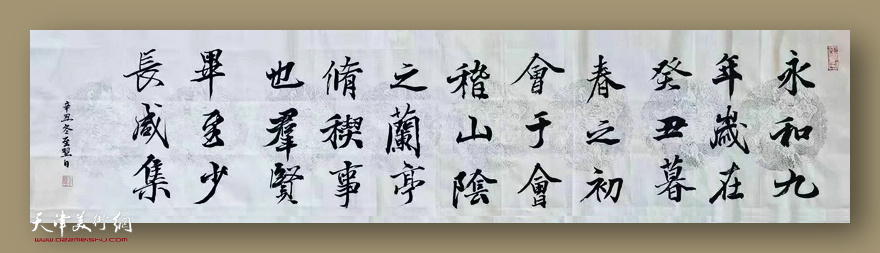 永和九
年歲在
癸丑暮
春之初
會于會
稽山陰
之蘭亭
脩稧事
也羣賢
畢至少
長咸集
辛丑冬至翌日
天津美術網
www.022meishu.com